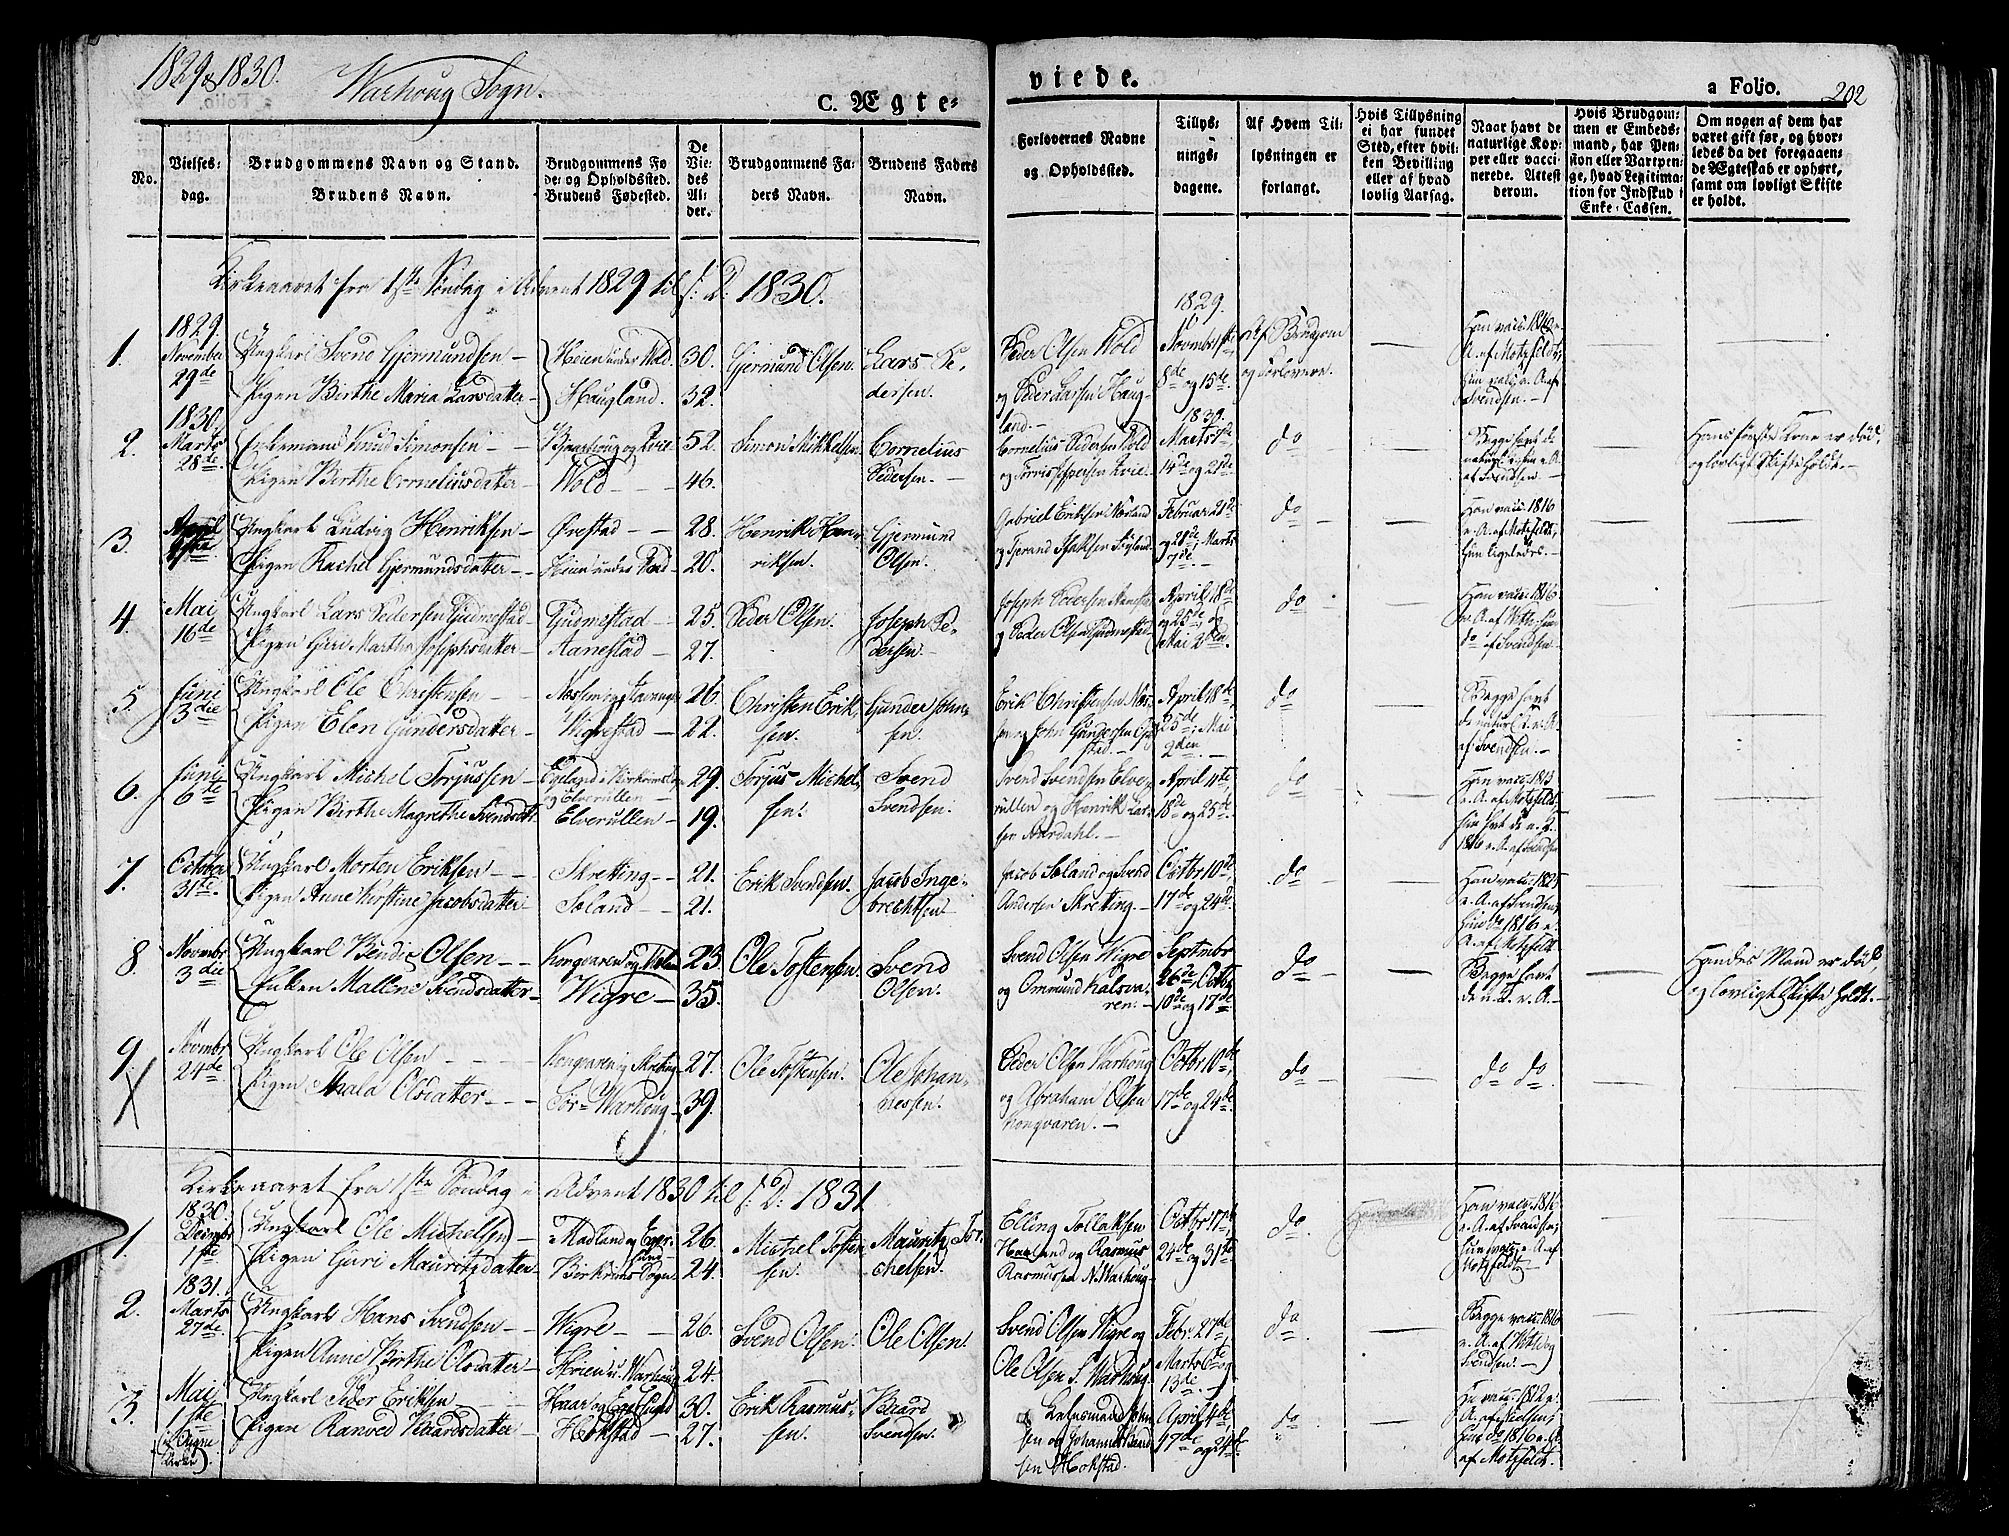 1829 & 1830.
Warhoug Sogn.
C. Ægte-
viede.
a Folio.
202
No.
Vielses-
dag.
Brudgommens Navn og Stand.
Brudens Navn.
Brudgommens Fø
de- og Opholdssted.
Brudens Fødested.
De
Vie-
des
Al-
der.
Brudgommens Fa-
ders Navn.
Brudens Faders
Navn.
Forlovernes Navne
og Opholdssted.
Tillys-
nings-
dagene.
Af Hvem Til-
lysningen er
forlangt.
Hvis Tillysning
ei har fundet
Sted, efter hvil-
ken Bevilling
eller af hvad
lovlig Aarsag.
Naar havt de
naturlige Kop-
per eller vacci-
nerede. Attest
derom.
Hvis Brudgom-
men er Embeds-
mand, har Pen-
sion eller Vartpen-
ge, hvad Legitima-
tion for Indskud i
Enke-Cassen.
Om nogen af dem har
været gift før, og hvor-
ledes da det foregaaen-
de Ægteskab er ophørt,
samt om lovligt Skifte
er holdt.
Kirkeaaret fra 1ste Søndag i Advent 1829 til s: D: 1830.
1.
1829.
November
29de
Ungkarl Svend Gjermundsen
Pigen Birthe Maria Larsdatter
Heien under Wold
Haugland.
30.
32.
Gjermund Olsen.
Lars Pe-
dersen.
Peder Olsen Wold
og Peder Larsen Haug-
land.
1829.
Novembr 1ste
8de og 15de
Af Brudgom
og Forlovere.
Han vacc. 1816
A. af Motzfeldt,
hun vacc. v. A. af
Svendsen.
2.
1830.
Marts
28de
Enkemand Knud Simonsen
Pigen Birthe Corneliusdatter
Wold
52.
46.
Simon Mikkelsen
Cornelius
Pedersen.
Cornelius Pedersen Wold
1830.
Marts 7de
14de og 21de
do
Begge havt de
af Svendsen.
Hans første Kone er død,
og lovligt Skifte holdt.
3.
April
Ungkarl Ludvig Henriksen
Pigen Rachel Gjermundsdatter
Ørestad
Heien under Wold
28.
20.
Henrik Hen-
riksen.
Gjermund
Olsen.
Gabriel Eriksen Nærland
Februar 21de
og 28de, Marts
7de.
do
Han vacc. 1816
v. A. af Motzfeldt,
hun ligeledes.
4.
Mai
16de
Ungkarl Lars Pedersen Gudmestad
Pigen Guri Marthe Josephsdatter
Gudmestad
Aanestad
25.
27.
Peder Olsen.
Joseph Pe-
dersen.
Joseph Pedersen Aanestad
og Peder Olsen Gudmestad
April 18de
og 25de og
Mai 2den.
do
Han vacc. 1816
do af Svendsen.
5.
Juni
3die
Ungkarl Ole Christensen
Pigen Elen Gundersdatter
Wigrestad
26.
22.
Christen Erik-
sen.
Gunder John-
sen.
Erik Christensen
April 18de,
25de, Mai
2den
do
Begge havt
af Svendsen.
6.
Juni
6te
Ungkarl Michel Torjussen
Pigen Birthe Magrethe Svendsdatt.
og Elverullen
Elverullen
29.
19.
Torjus Michel-
sen.
Svend
Svendsen.
Svend Svendsen Elve-
rullen og Henrik Lar-
sen Aardahl.
April 11te
18de og 25de
do
Han vacc. 1813
v. A. af Motzfeldt
7.
October
31te.
Ungkarl Morten Eriksen
Pigen Anne Kirstine Jacobsdatter
Skretting
Soland
21.
21.
Erik Svendsen.
Jacob Inge-
brechtsen
Jacob Soland og Svend
Andersen Skretting.
Octbr 10de
17de og 24de
do
v. A. af Svendsen,
hun do 1816 v.
A. af Motzfeldt
8.
Novembr
3die
Ungkarl Bendix Olsen
Enken Mallene Svendsdatter
Wigre
23.
35.
Ole Tostensen.
Svend
Olsen.
Svend Olsen Wigre
og Ommund Kalsva-
ren.
Septmbr
26de, Octbr
10de og 17de
do
Begge havt
de n. K. v. A.
Hendes Mand er død,
og lovligt Skifte holdt.
9.
Novmbr
24de
Ungkarl Ole Olsen
Pigen Olsdatter
Kongvaren og Skretting
Sør-Warhoug
27.
39.
Ole Tostensen.
Ole Johan-
nessen.
Peder Olsen Warhoug
og Abraham Olsen
Kongvaren.
Octbr 10de
17de og 24de
do
do do
Kirkeaaret fra 1ste Søndag i Advent 1830 til s: D: 1831
1.
1830.
Decmbr
1ste
Ungkarl Ole Michelsen
Pigen Guri Mauritzdatter
Madland og Eger-
sund
Birkrims Sogn
26.
24.
Michel Tosten-
sen.
Mauritz Tor-
chelsen.
Elling Tollaksen
og Rasmus
Rasmussen N. Warhoug
Octbr 17de
24de og 31te
do.
Han vacc. 1816
v. A. af Svendsen,
hun vacc. v. A. af
Motzfeldt
2.
1831.
Marts
27de
Ungkarl Hans Svendsen
Pigen Anne Birthe Olsdatter
Wigre
Heien u. Warhoug
26.
24.
Svend Olsen.
Ole Olsen.
Svend Olsen Wigre og
Ole Olsen S. Warhoug.
Febr. 27de
Marts 6te og
13de.
do
Begge vacc. 1816
Svendsen.
3.
Mai
1ste
(i Ougne
Kirke)
Ungkarl Peder Eriksen
Pigen Ranved Baardsdatter
Haar og Egersund
Hokstad
30.
27.
Erik Rasmus-
sen.
Baard
Svendsen.
Lehnsmand John-
sen og Johannes Baard-
sen Hokstad.
April 4de
17de og 24de
do
A. af Nielsen;
hun do 1816 v. A.
af Motzfeldt.